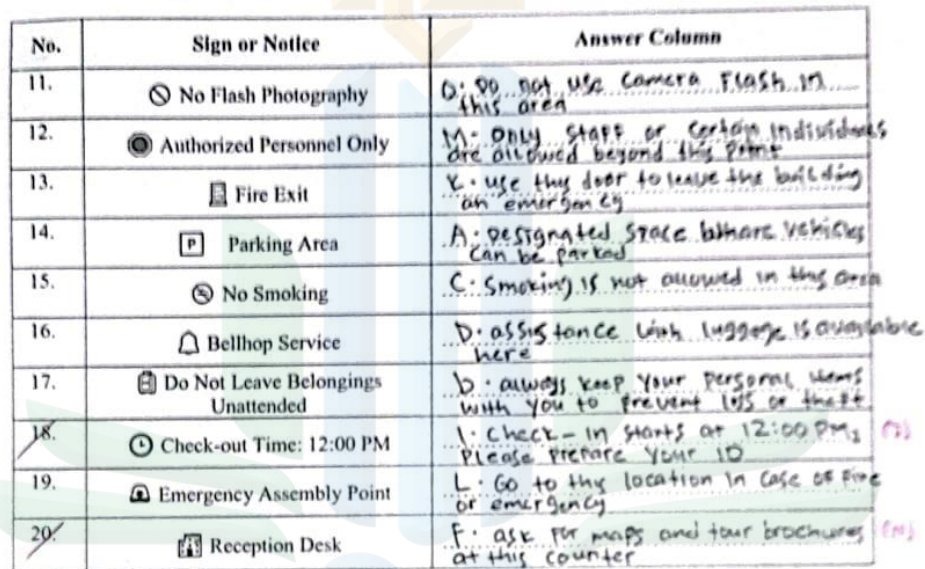 No. Sign or Notice Answer Column
11. No Flash Photography O: Do not use camera Flash in
this area
12. Authorized Personnel Only M: Only staff or certain individuals
are allowed beyond this point
13. Fire Exit K. use thy door to leave the building
an emergency
14. P Parking Area A: Designated space where vehicles
can be parked
15. No Smoking C: Smoking is not allowed in this area
16. Bellhop Service D. assistance with luggage is available
here
17. Do Not Leave Belongings
Unattended
b. always keep your personal items
with you to prevent loss or theft
18. Check-out Time: 12:00 PM I. Check-in starts at 12:00 PM,
Please prepare your ID
19. Emergency Assembly Point L. Go to thy location in case of fire
or emergency
20. Reception Desk F. ask for maps and tour brochures (N)
at this counter